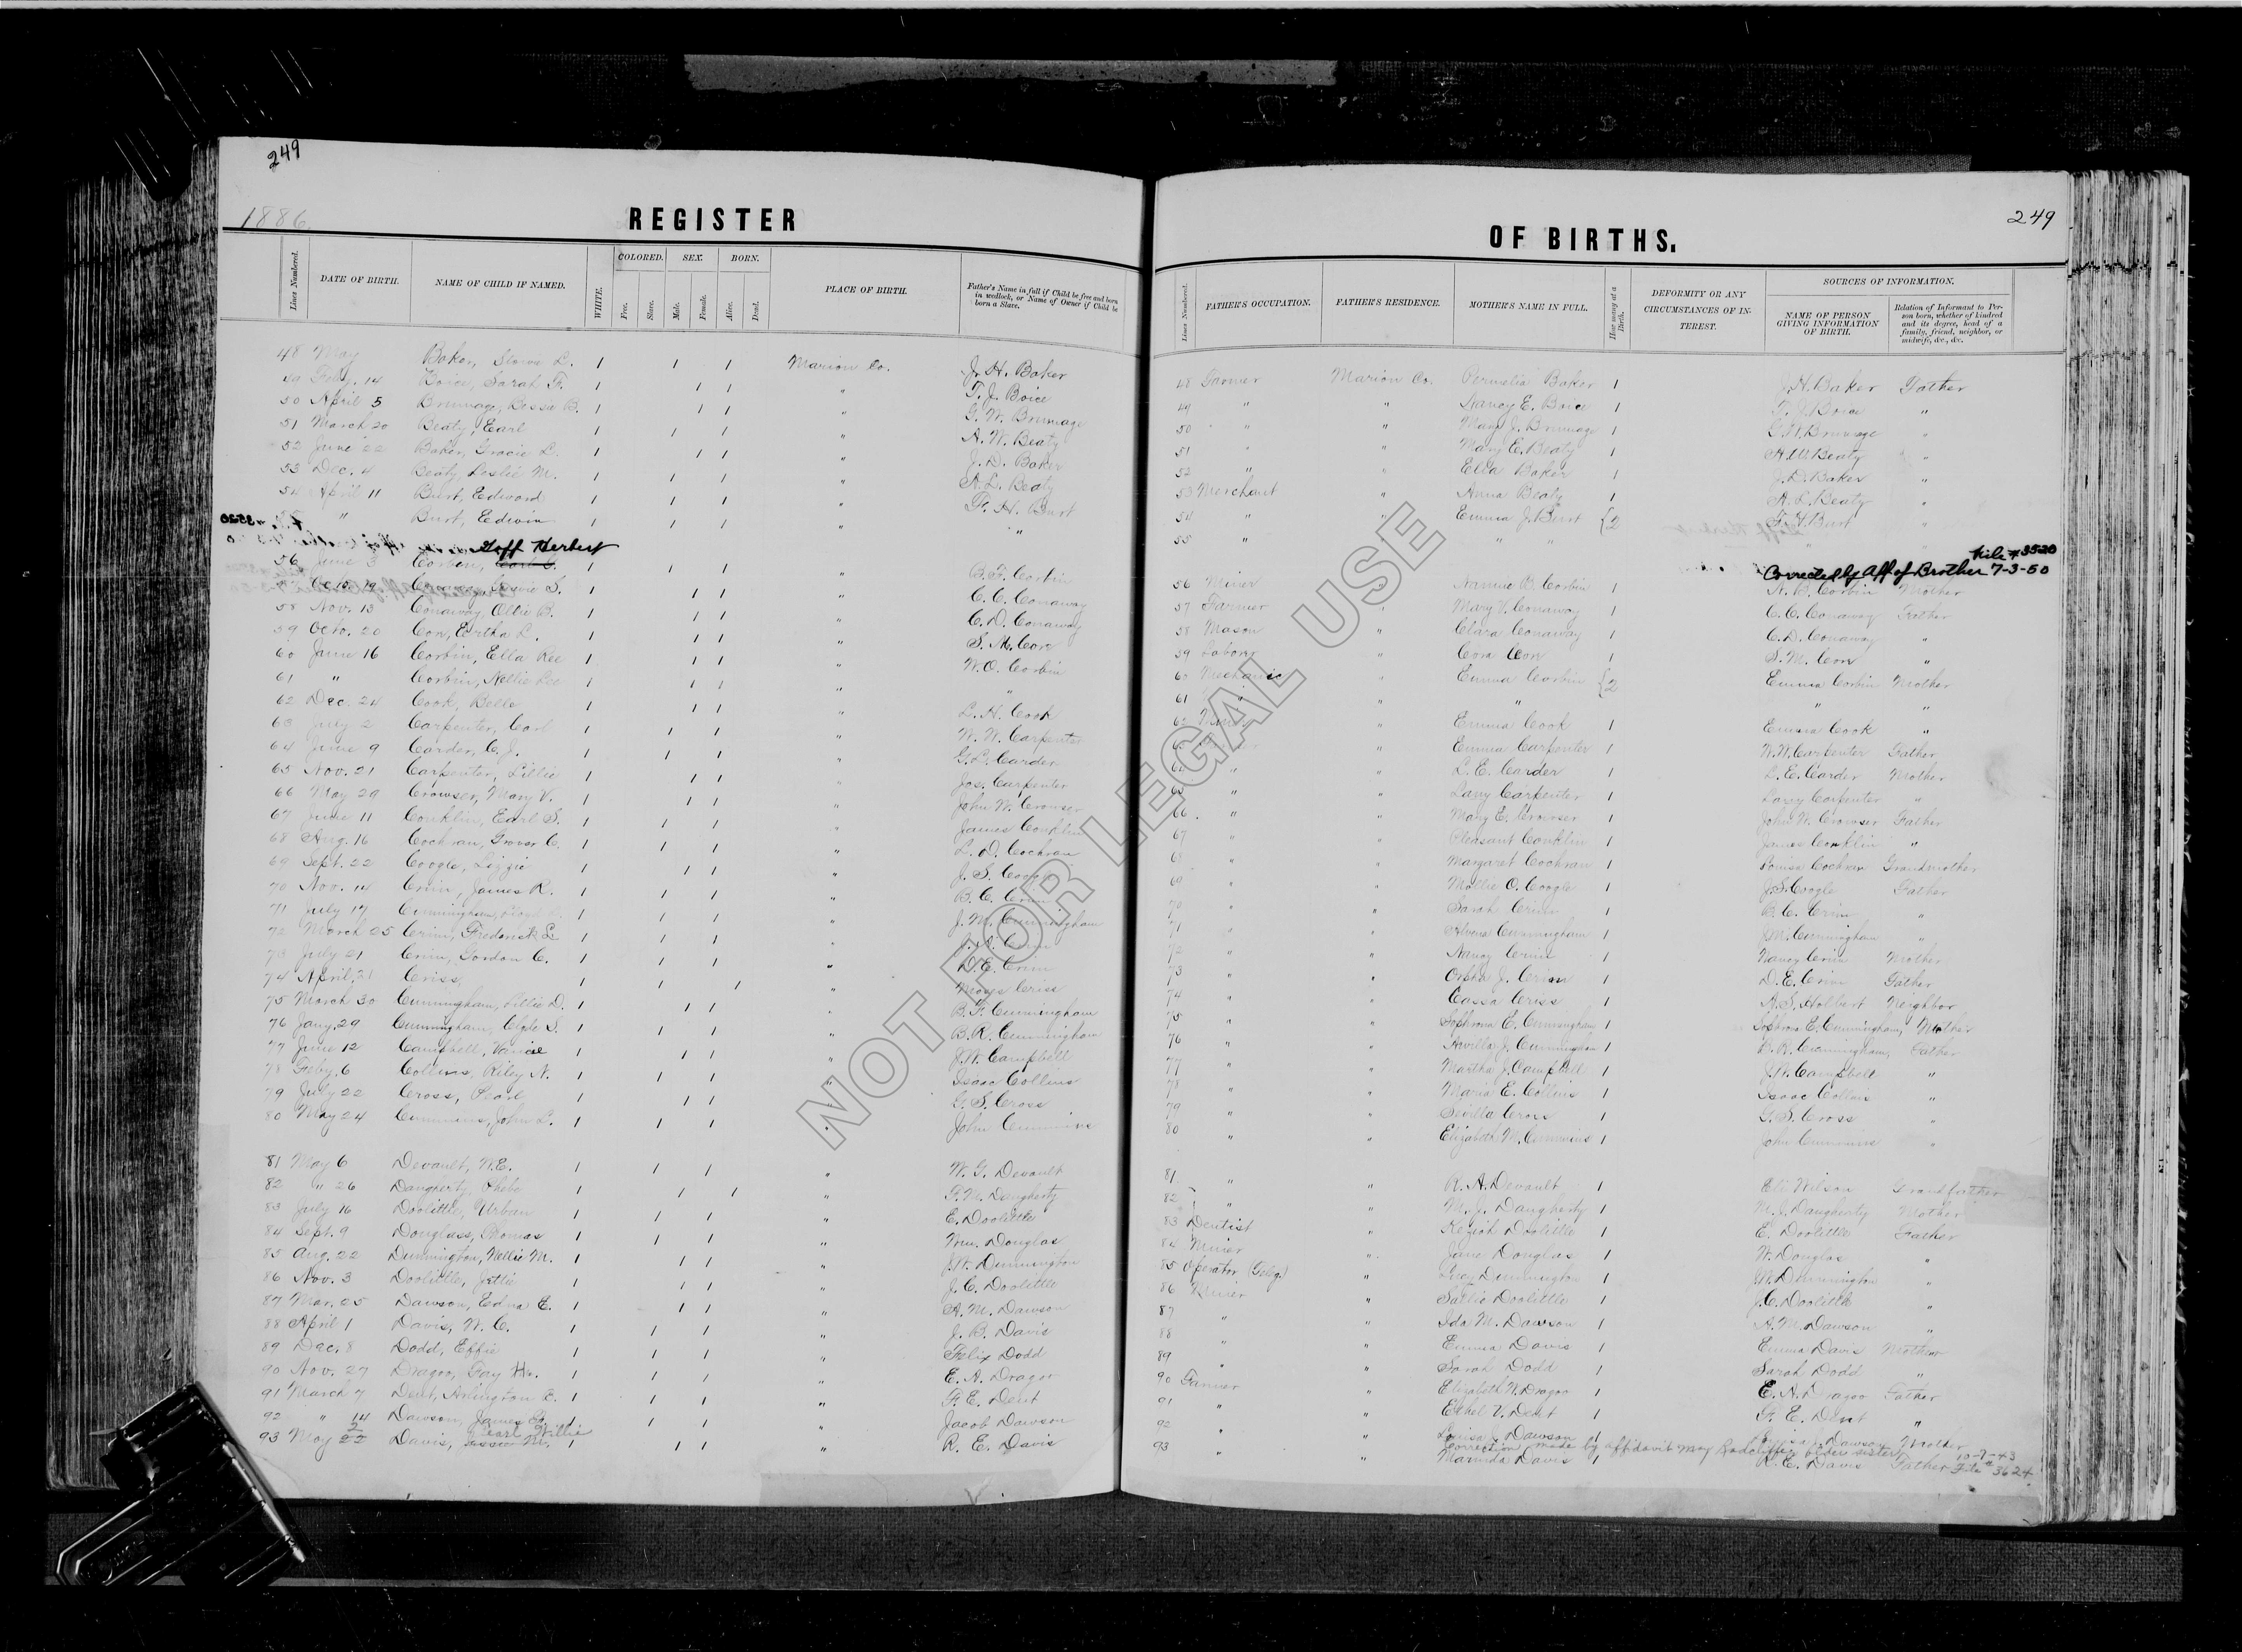 249
1886.
REGISTER
Lines Numbered.
DATE OF BIRTH.
NAME OF CHILD IF NAMED.
WHITE.
COLORED.
Free.
Slave.
SEX.
Male.
Female.
BORN.
Alive.
Dead.
PLACE OF BIRTH.
Father's Name in full if Child be free and born in wedlock, or Name of Owner if Child be born a Slave.
48 May Baker, L. 1 1 1 Marion Co. J. H. Baker
49 Feby. 14 Boice, Sarah F. 1 1 1 " T. J. Boice
50 April 5 Brumage, Bessie B. 1 1 1 " G. W. Brumage
51 March 20 Beaty, Earl 1 1 1 " A. W. Beaty
52 June 22 Baker, Gracie L. 1 1 1 " J. D. Baker
53 Dec. 4 Beaty, Leslie M. 1 1 1 " A. L. Beaty
54 April 11 Burt, Edward 1 1 1 " F. H. Burt
" Burt, Edwin 1 1 1 " " "
Goff Herbert
56 June 3 Corbin, 1 1 1 " B. F. Corbin
Octo. 19 Conaway, S. 1 1 1 " C. C. Conaway
58 Nov. 13 Conaway, Ollie B. 1 1 1 " C. D. Conaway
59 Octo. 20 Con, Ertha L. 1 1 1 " S. M. Con
60 June 16 Corbin, Ella Ree 1 1 1 " W. O. Corbin
61 " Corbin, Nellie Lee 1 1 1 " "
62 Dec. 24 Cook, Belle 1 1 1 " L. H. Cook
63 July 2 Carpenter, Carl 1 1 1 " W. W. Carpenter
64 June 9 Carder, C. J. 1 1 1 " G. L. Carder
65 Nov. 21 Carpenter, Lillie 1 1 1 " Jos. Carpenter
66 May 29 Crowser, Mary V. 1 1 1 " John W. Crowser
67 June 11 Conklin, Earl S. 1 1 1 " James Conklin
68 Aug. 16 Cochran, Grover C. 1 1 1 " L. D. Cochran
69 Sept. 22 Coogle, Lizzie 1 1 1 " J. S. Coogle
70 Nov. 14 Crim, James R. 1 1 1 " B. C. Crim
71 July 17 Cunningham, 1 1 1 " J. M. Cunningham
72 March 25 Crim, Frederick L. 1 1 1 " Crim
73 July 21 Crim, Gordon C. 1 1 1 " D. E. Crim
74 April, 21 Criss, 1 1 1 " Moys Criss
75 March 30 Cunningham, Lillie D. 1 1 1 " B. F. Cunningham
76 Jany. 29 Cunningham, Clyde S. 1 1 1 " B. R. Cunningham
77 June 12 Campbell, 1 1 1 " J. W. Campbell
78 Feby. 6 Collins, Riley N. 1 1 1 " Isaac Collins
79 July 22 Cross, Pearl 1 1 1 " G. S. Cross
80 May 24 Cummins, John L. 1 1 1 " John Cummins
81 May 6 Devault, W. E. 1 1 1 " W. G. Devault
82 " 26 Daugherty, Phebe 1 1 1 " F. M. Daugherty
83 July 16 Doolittle, Urban 1 1 1 " E. Doolittle
84 Sept. 9 Douglass, Thomas 1 1 1 " Wm. Douglas
85 Aug. 22 Dunnington, Nellie M. 1 1 1 " J. W. Dunnington
86 Nov. 3 Doolittle, Jettie 1 1 1 " J. C. Doolittle
87 Mar. 25 Dawson, Edna E. 1 1 1 " A. M. Dawson
88 April 1 Davis, W. C. 1 1 1 " J. B. Davis
89 Dec. 8 Dodd, Effie 1 1 1 " Felix Dodd
90 Nov. 27 Dragoo, Fay 1 1 1 " E. A. Dragoo
91 March 7 Dent, Arlington E. 1 1 1 " F. E. Dent
92 " 14 Dawson, James 1 1 1 " Jacob Dawson
2 Pearl Willie
93 May 22 Davis, Jessie M. 1 1 1 " R. E. Davis
249
OF BIRTHS.
Lines Numbered.
FATHER'S OCCUPATION.
FATHER'S RESIDENCE.
MOTHER'S NAME IN FULL.
How many at a Birth.
DEFORMITY OR ANY CIRCUMSTANCES OF INTEREST.
SOURCES OF INFORMATION.
NAME OF PERSON GIVING INFORMATION OF BIRTH.
Relation of Informant to Person born, whether of kindred and its degree, head of a family, friend, neighbor, or midwife, &c., &c.
48 Farmer Marion Co. Permelia Baker 1 J. H. Baker Father
49 " " Nancy E. Boice 1 T. J. Boice "
50 " " Mary J. Brumage 1 G. W. Brumage "
51 " " Mary E. Beaty 1 A. W. Beaty "
52 " " Ella Baker 1 J. D. Baker "
53 Merchant " Anna Beaty 1 A. L. Beaty "
54 " " Emma J. Burt {2 F. H. Burt "
55 " " " "
File #3520
Corrected by Aff of Brother 7-3-50
56 Miner " Nannie B. Corbin 1 N. B. Corbin Mother
57 Farmer " Mary V. Conaway 1 C. C. Conaway Father
58 Mason " Clara Conaway 1 C. D. Conaway "
59 Laborer " Cora Con 1 S. M. Con "
60 Mechanic " Emma Corbin {2 Emma Corbin Mother
61 " " " " "
62 Miner " Emma Cook 1 Emma Cook "
" Emma Carpenter 1 W. W. Carpenter Father
64 " " L. E. Carder 1 L. E. Carder Mother
65 " " Lany Carpenter 1 Lany Carpenter "
66 " " Mary E. Crowser 1 John W. Crowser Father
67 " " Pleasant Conklin 1 James Conklin "
68 " " Margaret Cochran 1 Louisa Cochran Grandmother
69 " " Mollie O. Coogle 1 J. S. Coogle Father
70 " " Sarah Crim 1 B. C. Crim "
71 " " Alvena Cunningham 1 J. M. Cunningham "
72 " " Nancy Crim 1 Nancy Crim Mother
73 " " Orpha J. Crim 1 D. E. Crim Father
74 " " Cassa Criss 1 A. S. Holbert Neighbor
75 " " Sophrona E. Cunningham 1 Sophrona E. Cunningham, Mother
76 " " Arvilla J. Cunningham 1 B. R. Cunningham, Father
77 " " Martha J. Campbell 1 J. W. Campbell "
78 " " Maria E. Collins 1 Isaac Collins "
79 " " Sevilla Cross 1 G. S. Cross "
80 " " Elizabeth M. Cummins 1 John Cummins "
81 " " R. A. Devault 1 Eli Wilson Grandfather
82 " " M. J. Daugherty 1 M. J. Daugherty Mother
83 Dentist " Keziah Doolittle 1 E. Doolittle Father
84 Miner " Jane Douglas 1 W. Douglas "
85 Operator (Telg.) " Lucy Dunnington 1 J. W. Dunnington "
86 Miner " Sallie Doolittle 1 J. C. Doolittle "
87 " " Ida M. Dawson 1 A. M. Dawson "
88 " " Emma Davis 1 Emma Davis Mother
89 " " Sarah Dodd 1 Sarah Dodd "
90 Farmer " Elizabeth N. Dragoo 1 E. A. Dragoo Father
91 " " Ethel V. Dent 1 F. E. Dent "
92 " " Louisa J. Dawson 1 Louisa J. Dawson Mother
Correction made by affidavit May Radcliffe, older sister 10-7-43
93 " " Marinda Davis 1 R. E. Davis Father File #3624
NOT FOR LEGAL USE